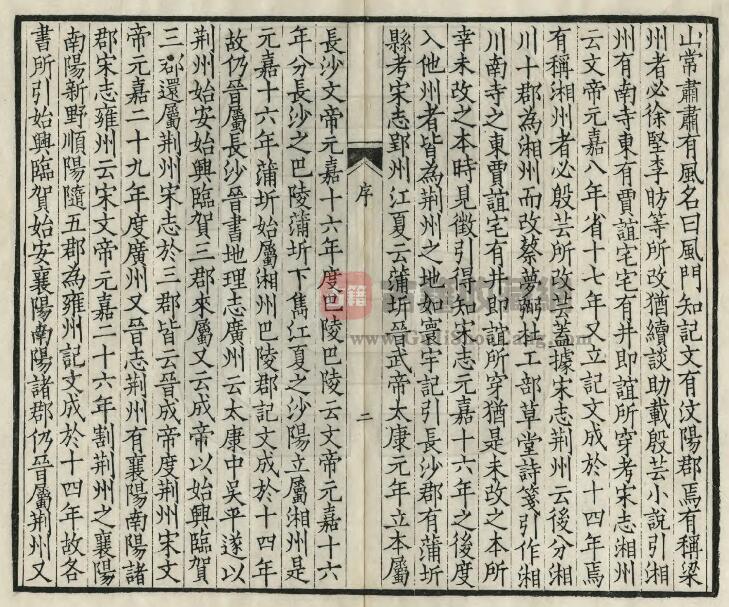 山常肅肅有風名曰風門知記文有汶陽郡焉有稱梁
州者必徐堅李昉等所改猶續談助載殷芸小說引湘
州有南寺東有賈誼宅宅有井即誼所穿考宋志湘州
云文帝元嘉八年省十七年又立記文成於十四年焉
有稱湘州者必殷芸所改芸蓋據宋志荆州云後分湘
川十郡為湘州而改蔡夢弼杜工部草堂詩箋引作湘
川南寺之東賈誼宅有井即誼所穿猶是未改之本所
幸未改之本時見徵引得知宋志元嘉十六年之後度
入他州者皆為荆州之地如寰宇記引長沙郡有蒲圻
縣考宋志郢州江夏云蒲圻晉武帝太康元年立本屬
序
二
長沙文帝元嘉十六年度巴陵巴陵云文帝元嘉十六
年分長沙之巴陵蒲圻下雋江夏之沙陽立屬湘州是
元嘉十六年蒲圻始屬湘州巴陵郡記文成於十四年
故仍晉屬長沙晉書地理志廣州云太康中吳平遂以
荆州始安始興臨賀三郡來屬又云成帝以始興臨賀
三郡還屬荆州宋志於三郡皆云晉成帝度荆州宋文
帝元嘉二十九年度廣州又晉志荆州有襄陽南陽諸
郡宋志雍州云宋文帝元嘉二十六年割荆州之襄陽
南陽新野順陽隨五郡為雍州記文成於十四年故各
書所引始興臨賀始安襄陽南陽諸郡仍晉屬荆州又
古籍
www.GuJiShouCang.com